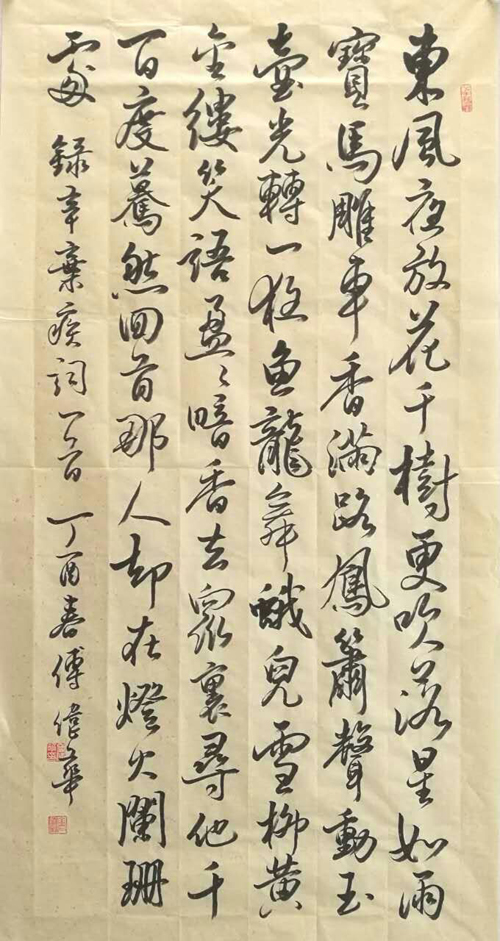 東風夜放花千樹更吹落星如雨
寶馬雕車香滿路鳳簫聲動玉
壺光轉一夜魚龍舞蛾兒雪柳黄
金缕笑語盈々暗香去眾裏尋他千
百度驀然回首那人却在燈火闌珊
處 録辛棄疾詞一首 丁酉春傅偉華